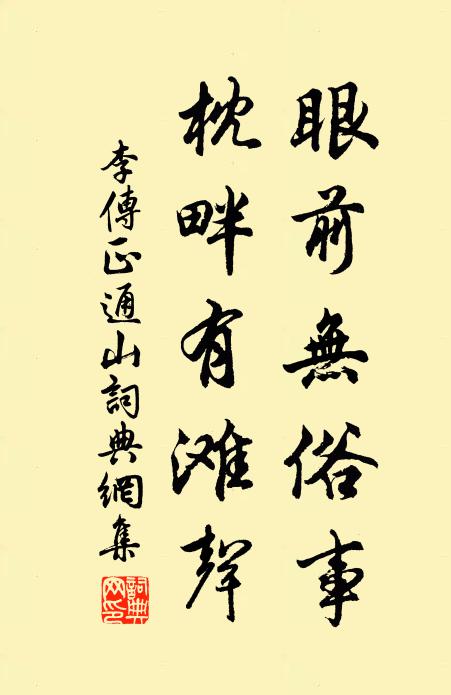 眼前無俗事
枕畔有滩聲
李傳正通山詞典網集
詞典网印